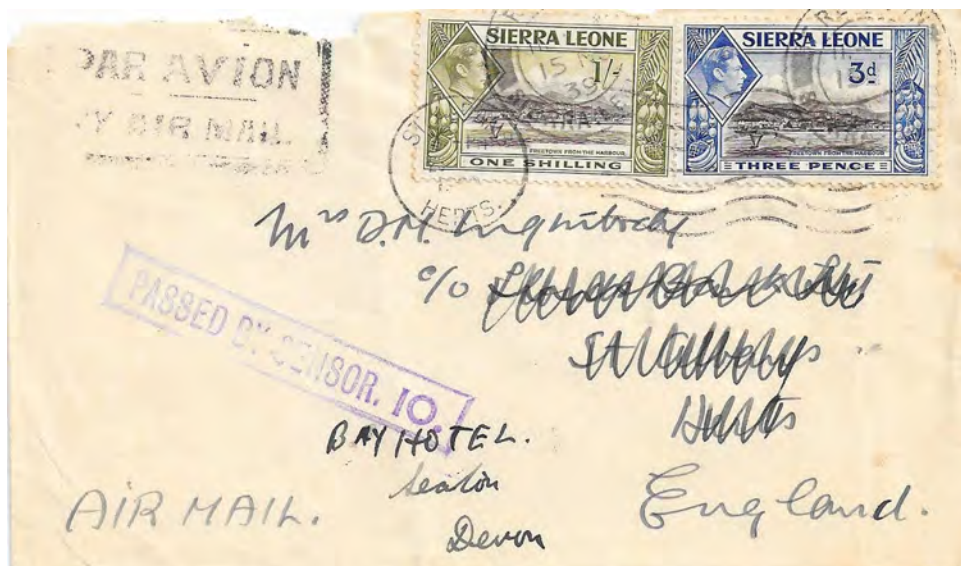 PAR AVION
BY AIR MAIL
SIERRA LEONE
1/-
FREETOWN FROM THE HARBOUR
ONE SHILLING
SIERRA LEONE
3d
FREETOWN FROM THE HARBOUR
THREE PENCE
15
39
HERTS.
Mrs D.M.
c/o
St Albans
Herts
England.
PASSED BY CENSOR. 10.
BAY HOTEL.
Seaton
Devon
AIR MAIL.